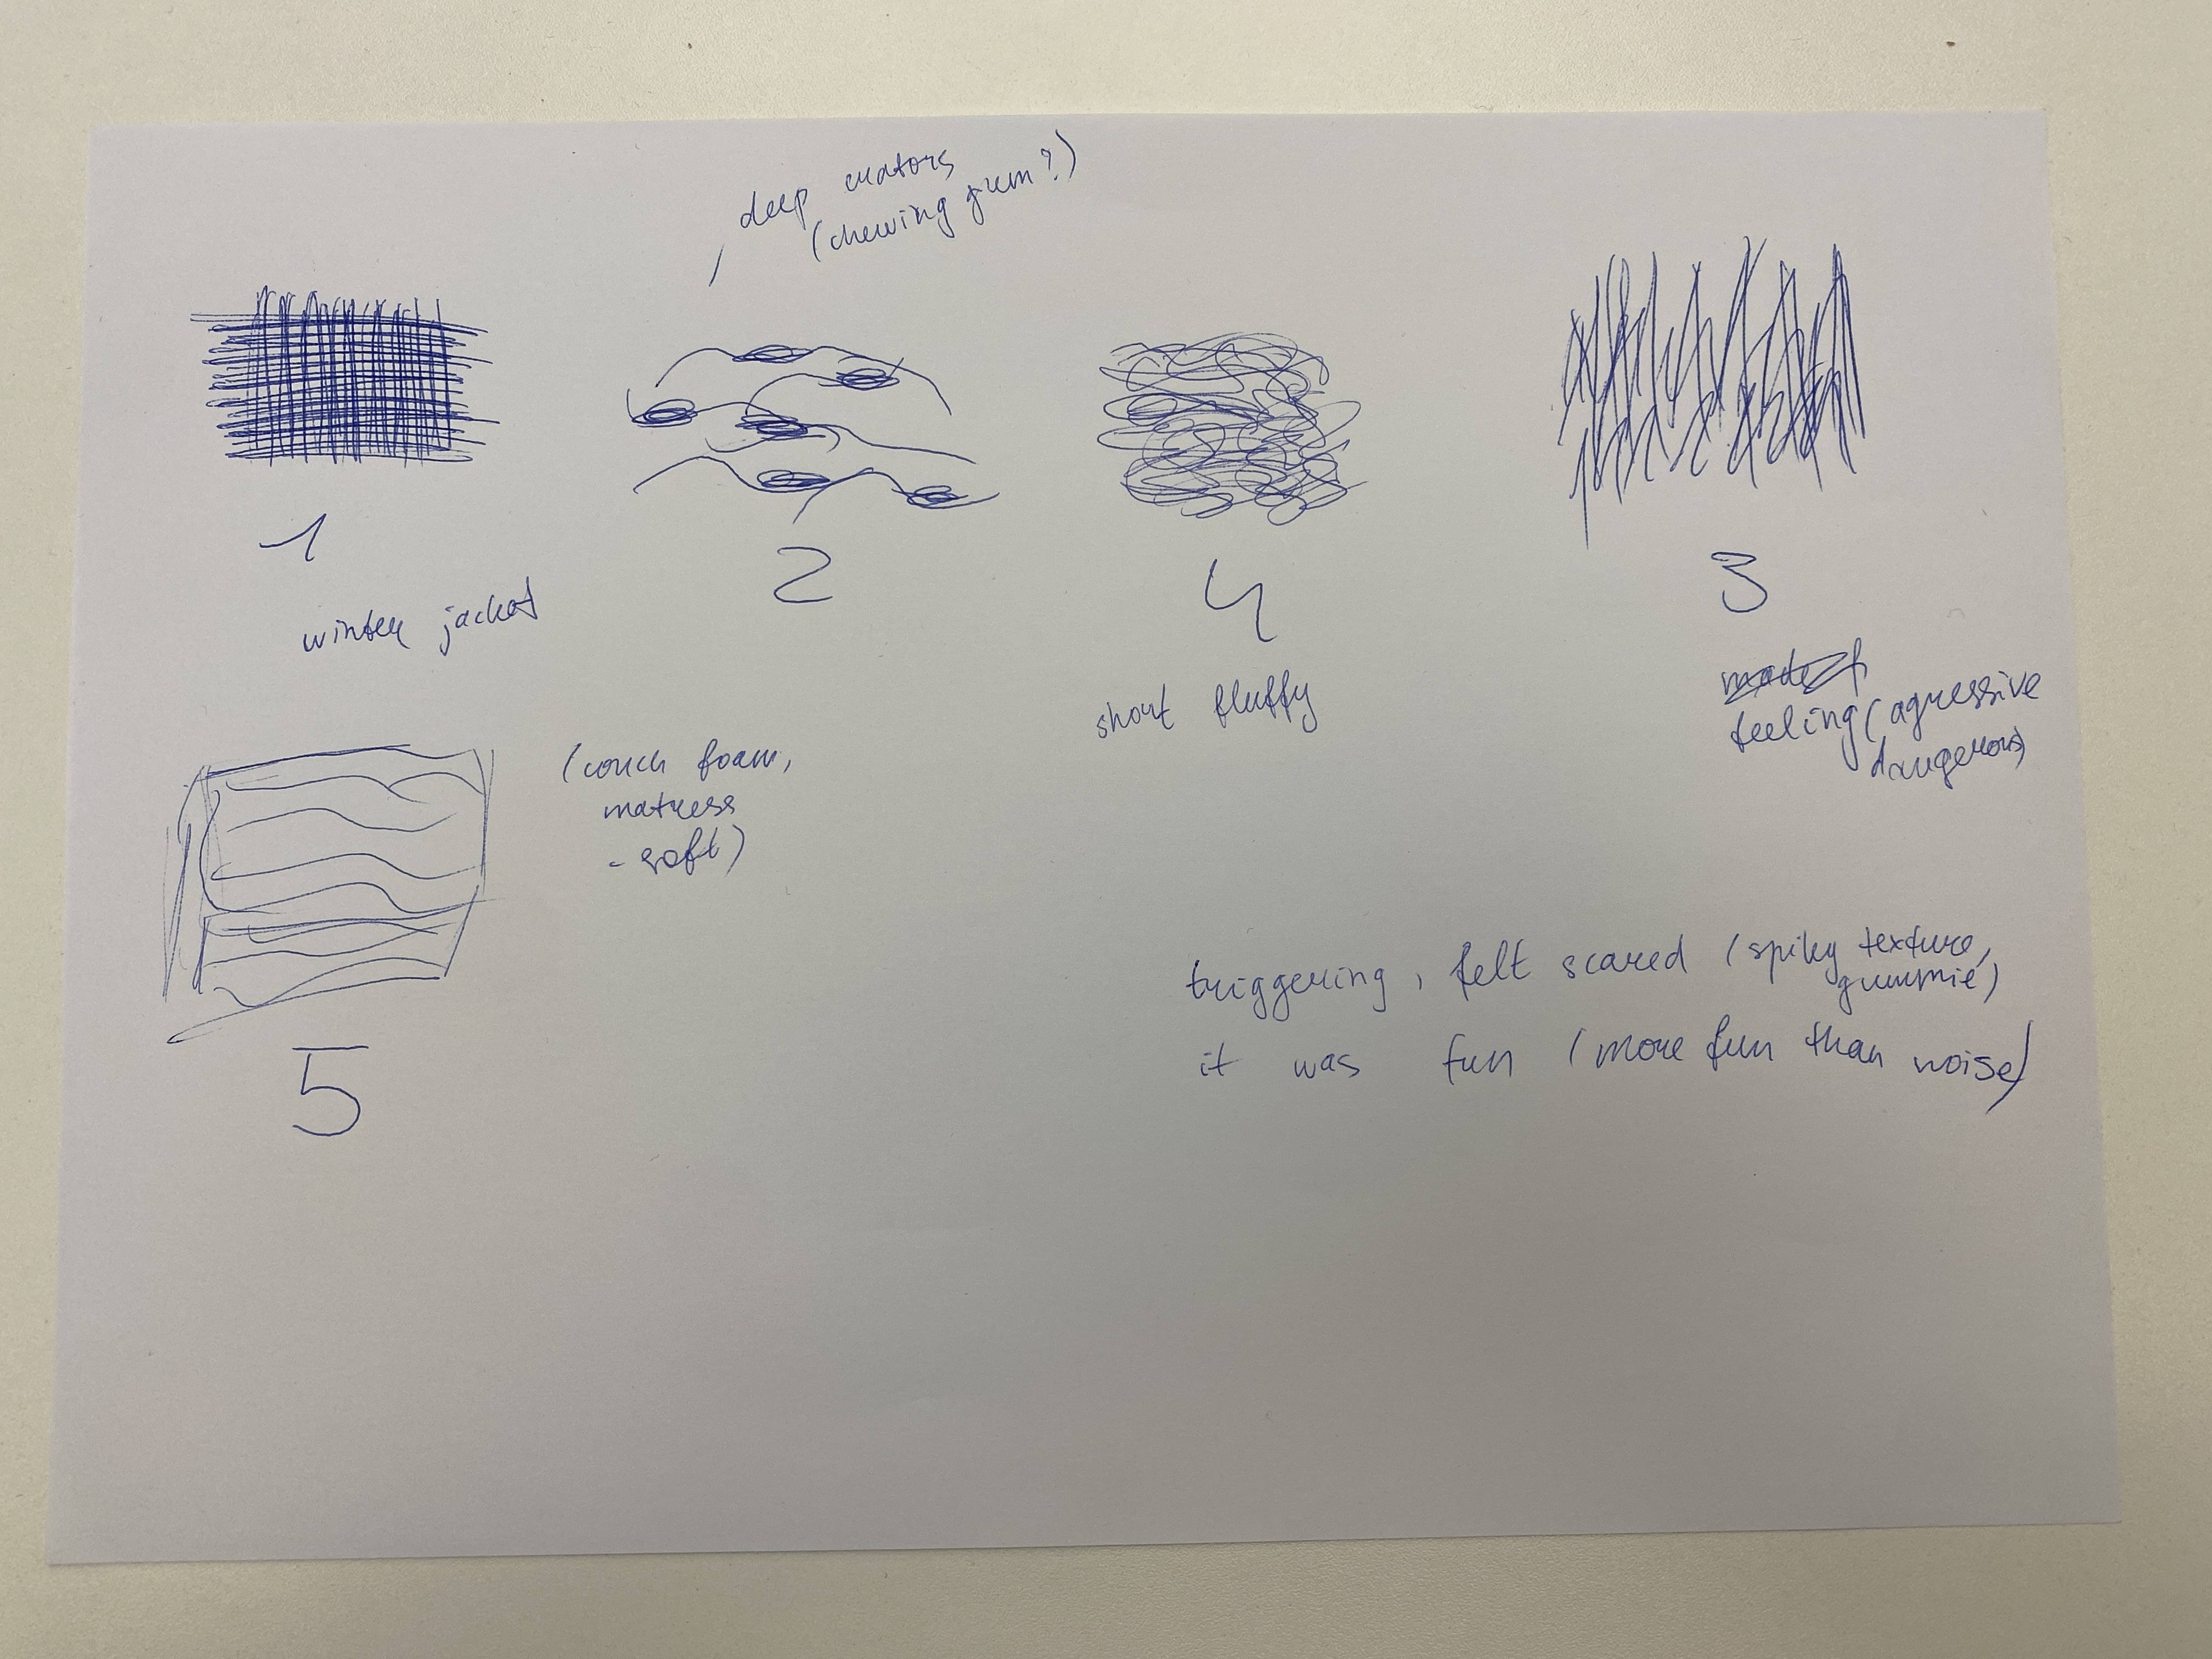 deep crators
(chewing gum?)
1
2
4
3
winter jacket
short fluffy
feeling (agressive
dangerous)
(couch foam,
matress
- soft)
5
triggering, felt scared (spiky texture,
gummie)
it was fun (more fun than noise)